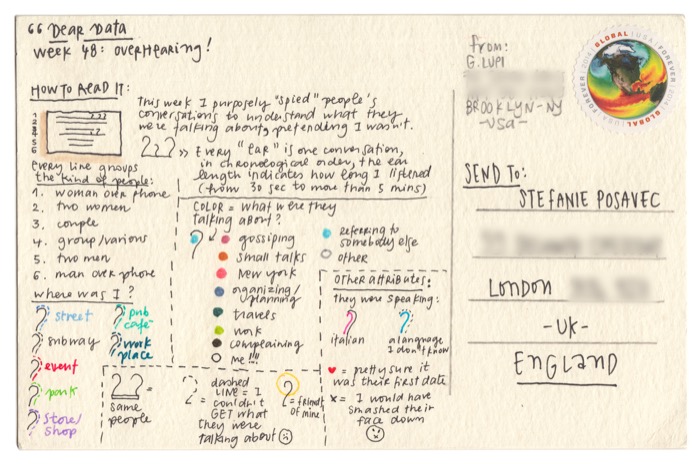 “ Dear Data
week 48: overhearing!
How to read it:
1
2
3
4
5
6
This week I purposely "spied" people's
conversations to understand what they
were talking about, pretending I wasn't.
» Every "ear" is one conversation,
in chronological order, the ear
length indicates how long I listened
(from 30 sec to more than 5 mins)
every line groups
the kind of people:
1. woman over phone
2. two women
3. couple
4. group/various
5. two men
6. man over phone
where was I?
street
pub
cafè
subway
work
place
event
park
store/
shop
COLOR = what were they
talking about?
gossiping
small talks
new york
organizing/
planning
travels
work
complaining
me!!!!
referring to
somebody else
other
other attributes:
they were speaking:
italian
a language
I don't know
= pretty sure it
was their first date
x = I would have
smashed their
face down
=
same
people
=
dashed
LINE = I
couldn't
GET what
they were
talking about
= friend
of mine
from:
G. LUPI
BROOKLYN - NY
- USA -
GLOBAL | USA | FOREVER
SEND TO:
STEFANIE POSAVEC
LONDON
- UK -
ENGLAND